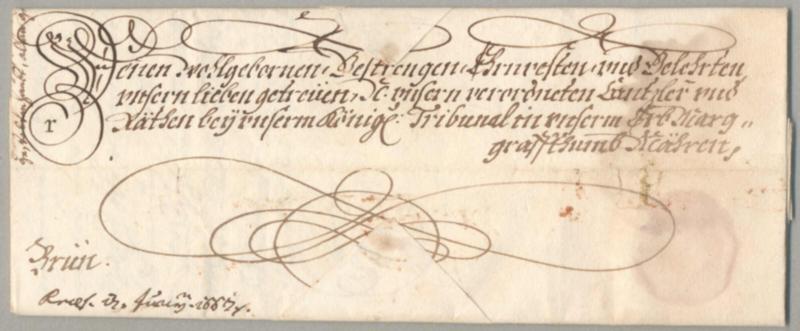 Denen Wohlgebornen, Gestrengen, Ehrnvesten, und Gelehrten,
unsern lieben getreüen, N: unsern verordneten Cantzler und
Räthen beÿ unserm Königl: Tribunal in unserm Erb Marg„
graffthumb Mähren,
r
Brün.